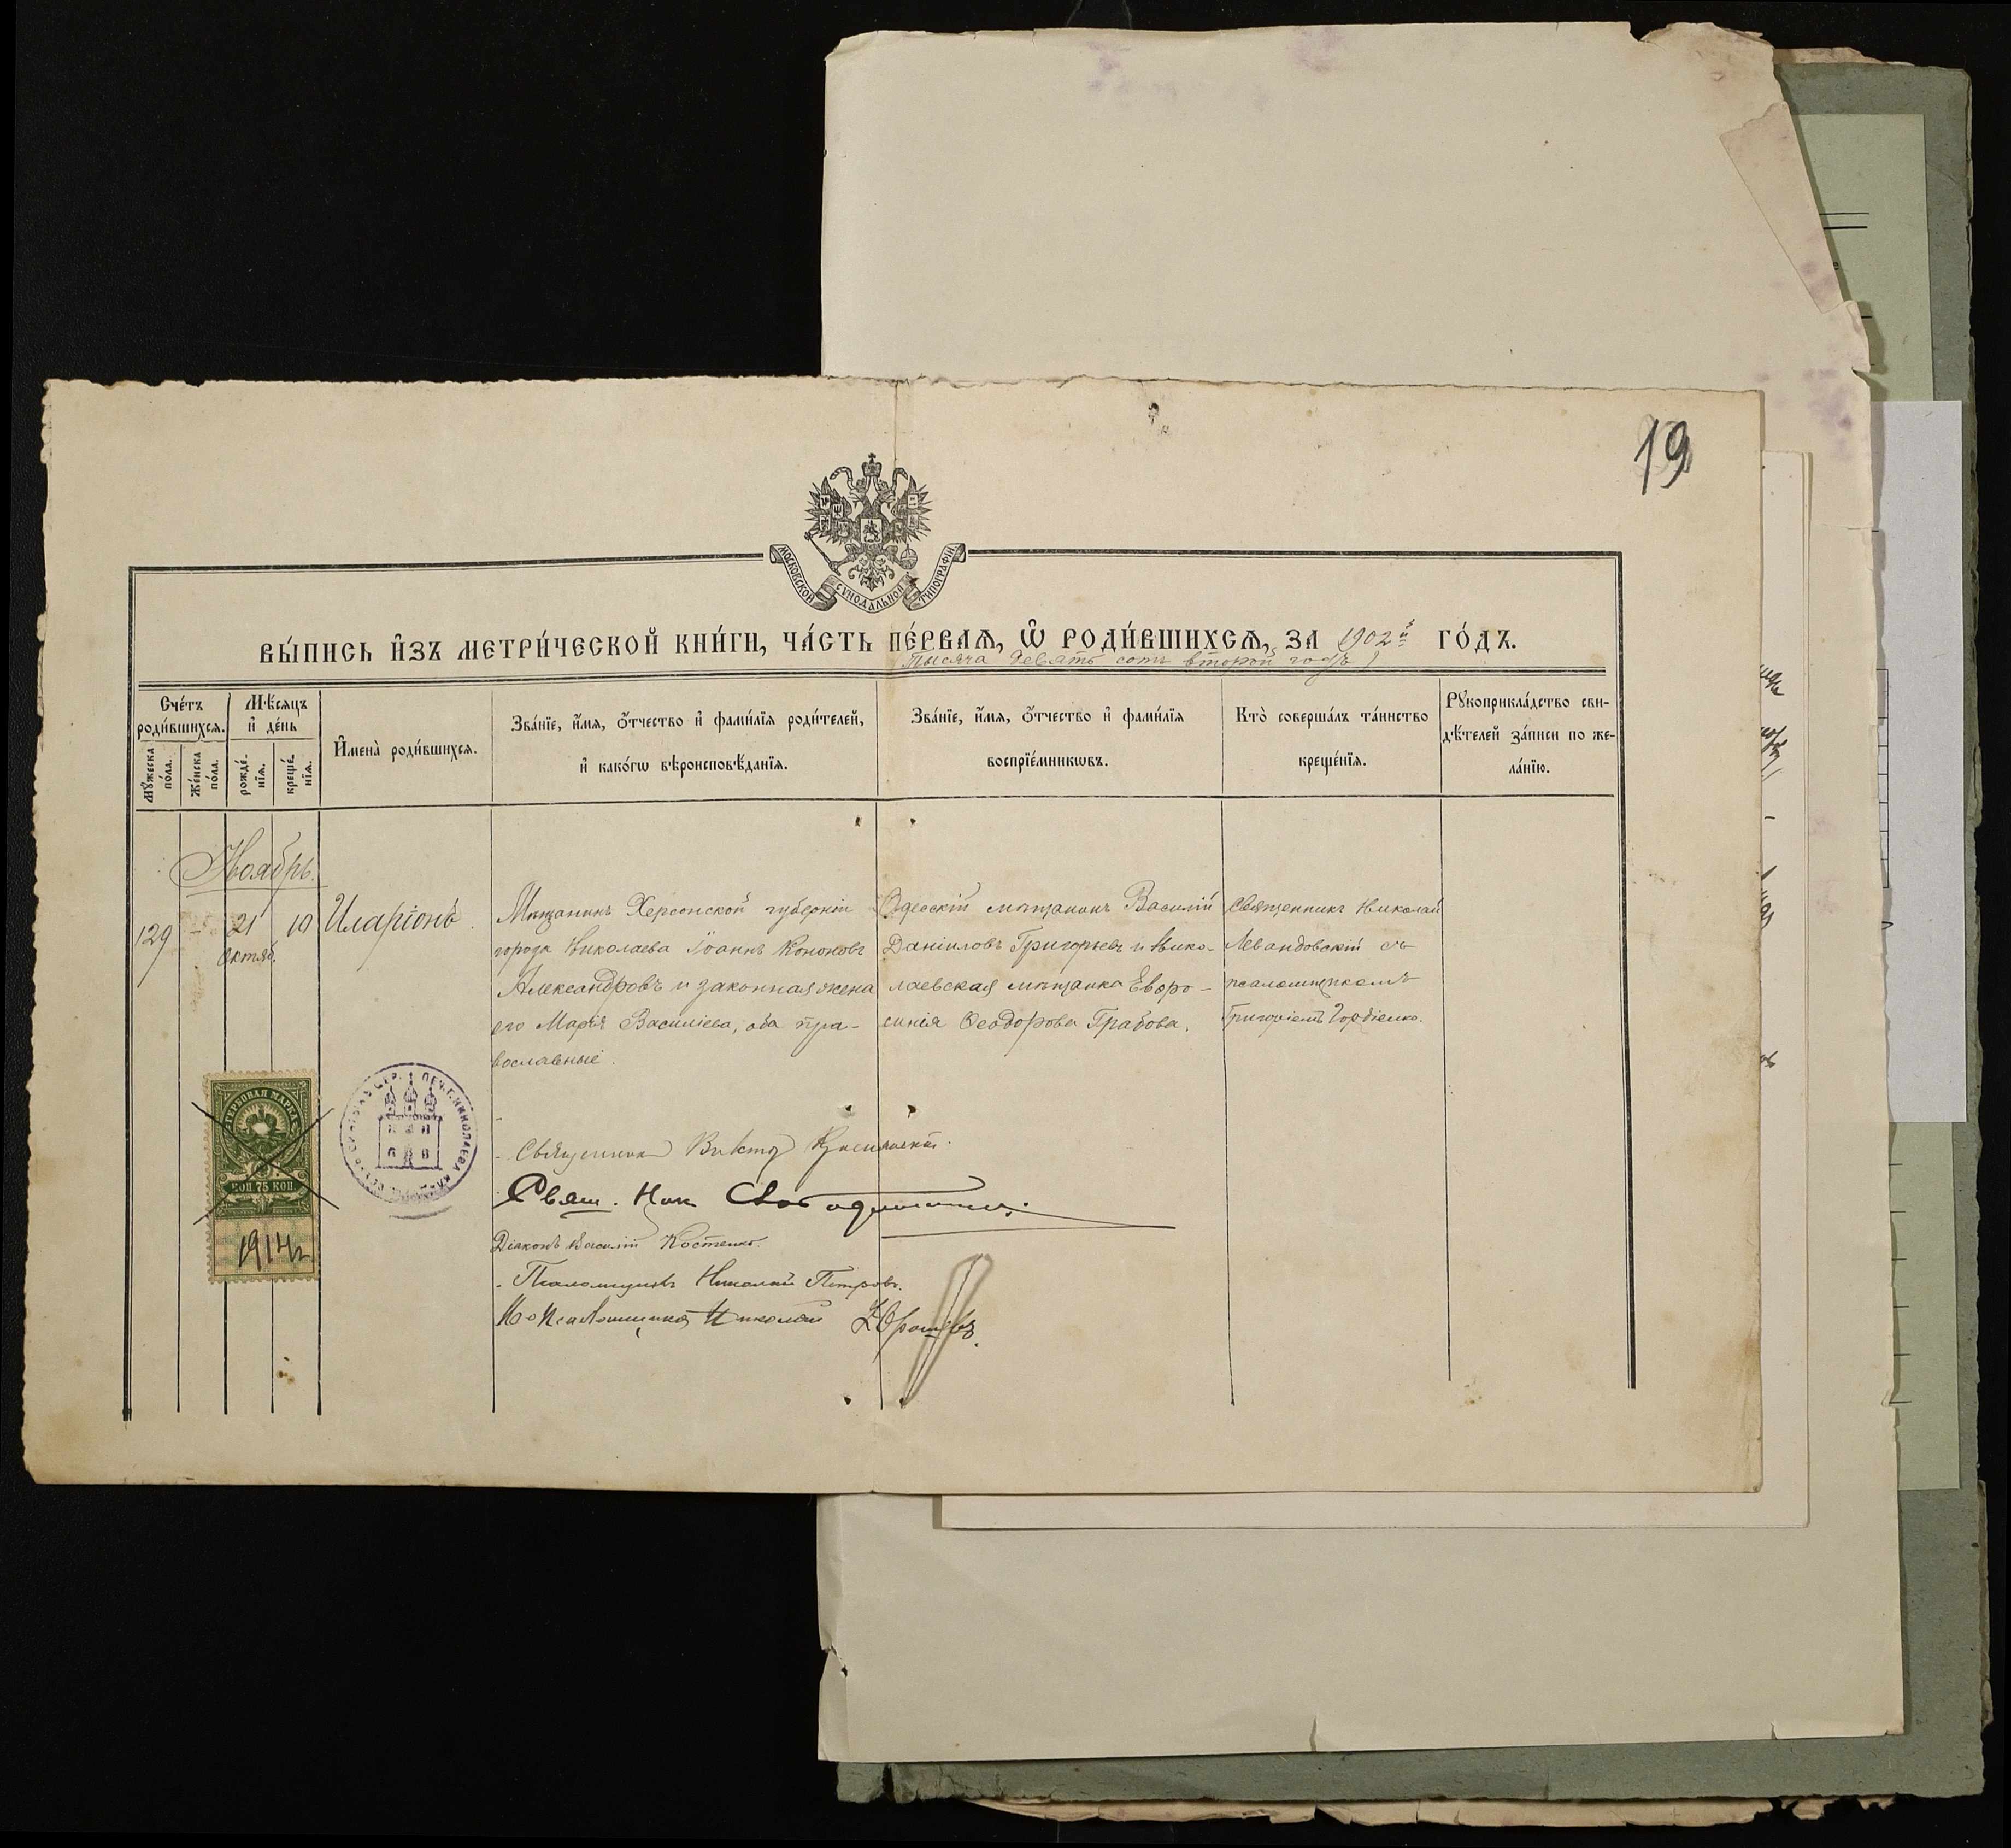 19
МОСКОВСКОЙ СѴНОДАЛЬНОЙ ТИПОГРАФІИ
ВЫ́ПИСЬ И҆ЗЪ МЕТРИ́ЧЕСКОЙ КНИ́ГИ, ЧА́СТЬ ПЕ́РВАѦ, Ѡ҆ РОДИ́ВШИХСѦ, ЗА 1902й ГО́ДЪ.
(тысяча девять сотъ второй годъ)
Сче́тъ роди́вшихсѧ.
Мꙋ́жеска по́ла.
Же́нска по́ла.
Мѣ́сѧцъ и҆ де́нь
рожде́нїѧ.
креще́нїѧ.
И҆мена̀ роди́вшихсѧ.
Зва́нїе, и҆́мѧ, ѻ҆́тчество и҆ фами́лїѧ роди́телей,
и҆ како́гѡ вѣроисповѣ́данїѧ.
Зва́нїе, и҆́мѧ, ѻ҆́тчество и҆ фами́лїѧ
воспрїе́мникѡвъ.
Кто̀ соверша́лъ та́инство
креще́нїѧ.
Рꙋкоприкла́дство сви-
дѣ́телей за́писи по же-
ла́нїю.
Ноябрь.
129 - 21 Октяб. 10 Иларіонъ.
Мѣщанинъ Херсонской губерніи
города Николаева Іоаннъ Кононовъ
Александровъ и законная жена
его Марія Василіева, оба пра-
вославные.
Одесскій мѣщанинъ Василій
Даніиловъ Григорьевъ и Нико-
лаевская мѣщанка Евфро-
синія Ѳеодорова Грабова.
Священникъ Николай
Левандовскій съ
псаломщикомъ
Григоріемъ Гордіенко.
ГЕРБОВАЯ МАРКА
КОП. 75 КОП.
1914 г.
ПЕЧ. Г. НИКОЛАЕВА
Священникъ Викторъ
Свящ. Ник.
Діаконъ Василій Костенко.
Псаломщикъ Николай Петровъ.
Николай